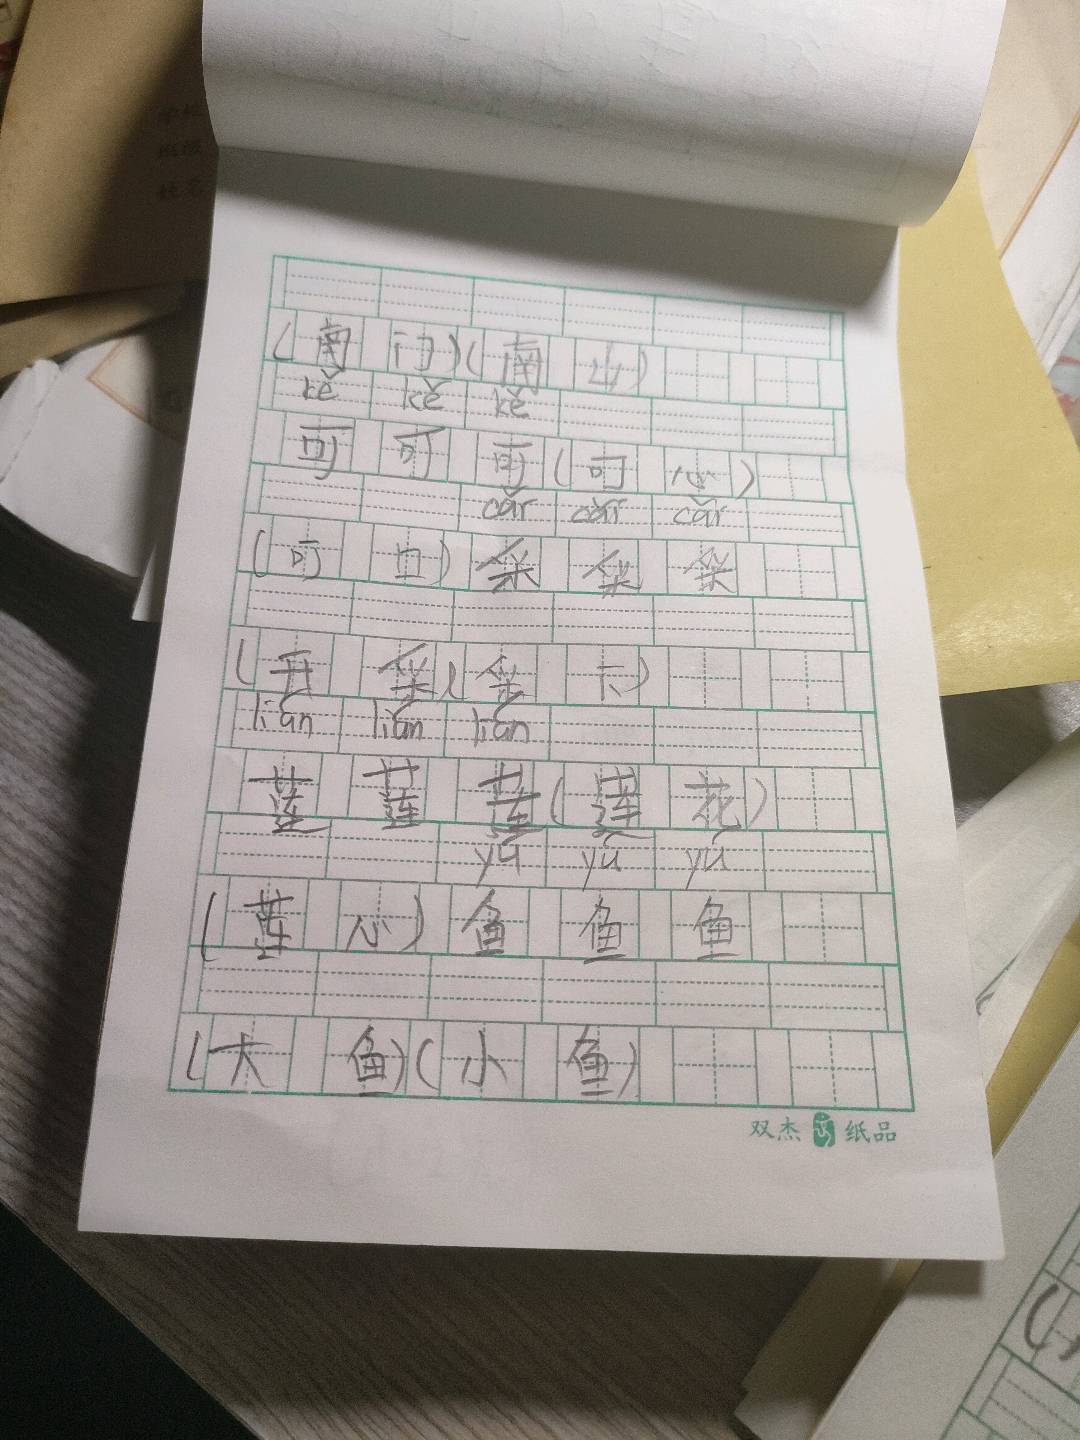 (南门)(南山)
kě kě kě
可可可(可心)
cǎi cǎi cǎi
(可口)采采采
(再采)(采下)
lián lián lián
莲莲莲(莲花)
yú yú yú
(莲心)鱼鱼鱼
(大鱼)(小鱼)
双杰 纸品